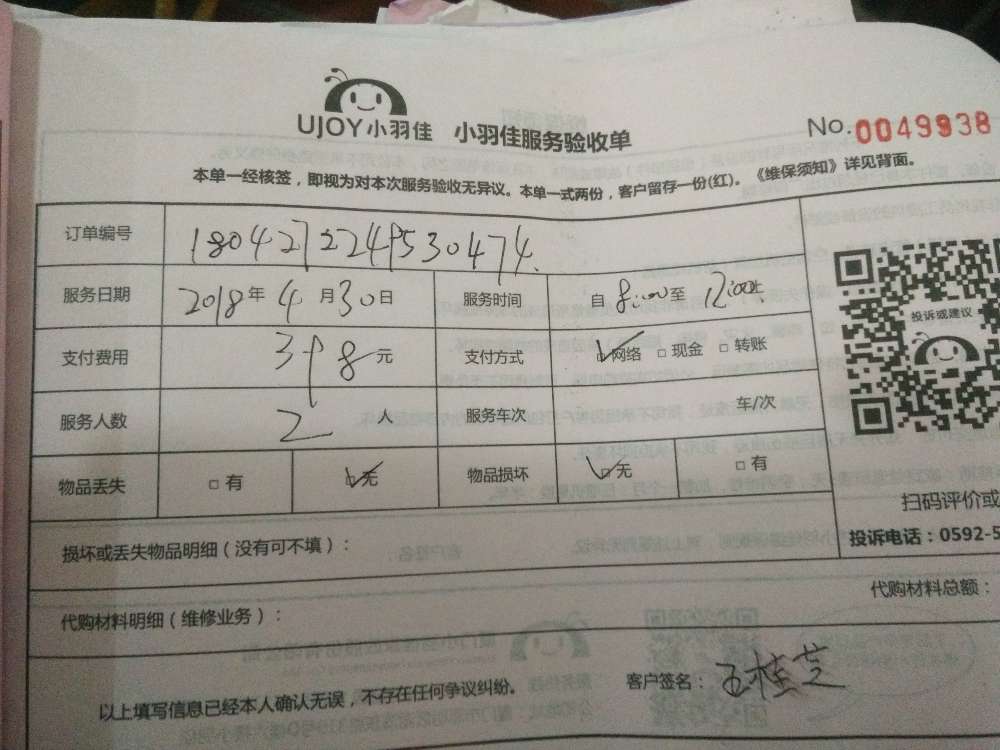 UJOY小羽佳 小羽佳服务验收单 No.0049938
本单一经核签，即视为对本次服务验收无异议。本单一式两份，客户留存一份(红)。《维保须知》详见背面。
订单编号 1804272249530474
服务日期 2018年4月30日 服务时间 自8:00至12:00
支付费用 398元 支付方式 网络 现金 转账
投诉或建议
服务人数 2人 服务车次 车/次
物品丢失 有 无 物品损坏 无 有
扫码评价或
损坏或丢失物品明细（没有可不填）：
投诉电话：0592-5
代购材料明细（维修业务）：
代购材料总额：
以上填写信息已经本人确认无误，不存在任何争议纠纷。 客户签名：王桂芝